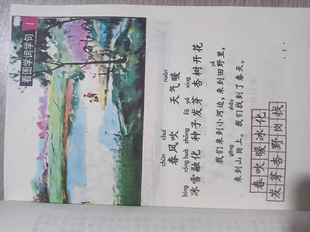 看图学词学句 1
chūn chuī nuǎn
春风吹 天气暖
bīng róng huà zhǒng fā yá xìng
冰雪融化 种子发芽 杏树开花
yě
我们来到小河边，来到田野里，
gǎng zhǎo
来到山岗上。我们找到了春天。
春吹暖冰化
发芽杏野岗找